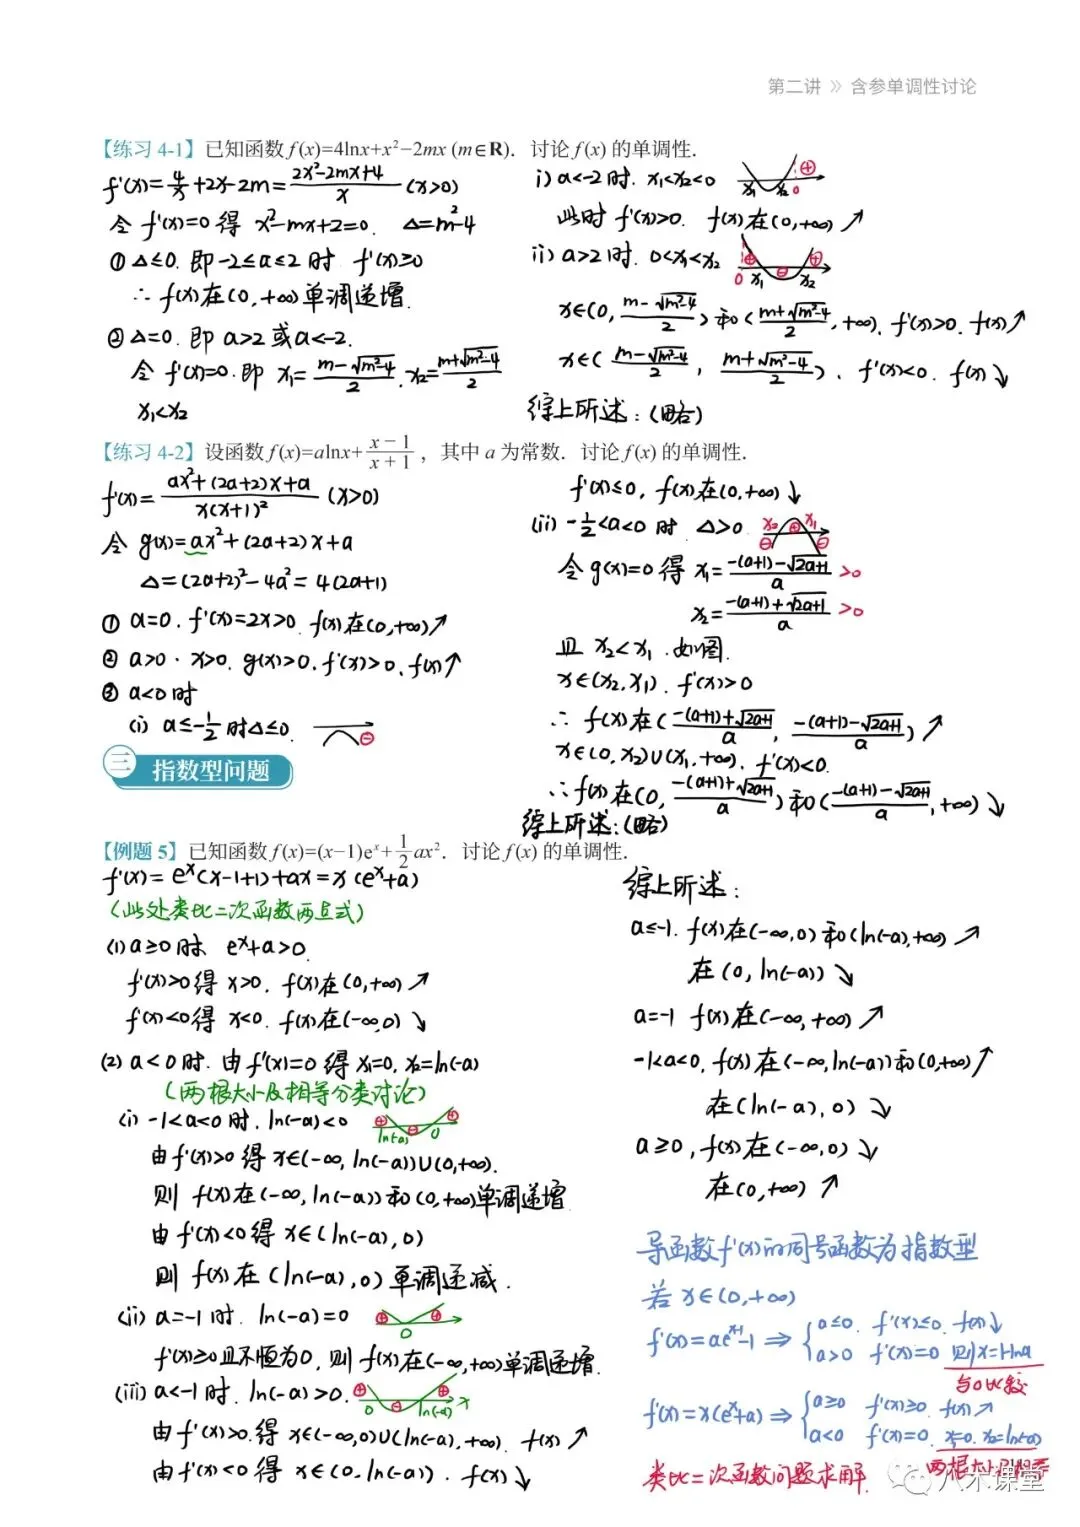 第二讲 》 含参单调性讨论
【练习 4-1】已知函数 f(x)=4lnx+x²−2mx (m∈R). 讨论 f(x) 的单调性.
f'(x)=4/x+2x-2m=(2x²-2mx+4)/x (x>0)
令 f'(x)=0 得 x²-mx+2=0. △=m²-4
① △≤0. 即 -2≤a≤2 时 f'(x)≥0
∴ f(x)在(0,+∞)单调递增.
② △=0. 即 a>2 或 a<-2.
令 f'(x)=0. 即 x₁=(m-√(m²-4))/2, x₂=(m+√(m²-4))/2
x₁<x₂
i) a<-2 时. x₁<x₂<0
x₁ x₂ 0 ⊕
此时 f'(x)>0. f(x)在(0,+∞)↗
ii) a>2 时. 0<x₁<x₂
⊕ ⊖ ⊕ 0 x₁ x₂
x∈(0, (m-√(m²-4))/2) 和 ((m+√(m²-4))/2, +∞), f'(x)>0. f(x)↗
x∈((m-√(m²-4))/2, (m+√(m²-4))/2), f'(x)<0. f(x)↘
综上所述:(略)
【练习 4-2】设函数 f(x)=alnx+(x−1)/(x+1), 其中 a 为常数. 讨论 f(x) 的单调性.
f'(x)=(ax²+(2a+2)x+a)/(x(x+1)²) (x>0)
令 g(x)=ax²+(2a+2)x+a
△=(2a+2)²-4a²=4(2a+1)
① a=0. f'(x)=2x>0. f(x)在(0,+∞)↗
② a>0. x>0. g(x)>0. f'(x)>0. f(x)↑
③ a<0时
(i) a≤-1/2 时△≤0. ⊖
f'(x)≤0, f(x)在(0,+∞)↘
(ii) -1/2<a<0 时 △>0. x₂ x₁ ⊖ ⊕ ⊖
令 g(x)=0 得 x₁=(-(a+1)-√(2a+1))/a >0
x₂=(-(a+1)+√(2a+1))/a >0
且 x₂<x₁. 如图.
x∈(x₂,x₁). f'(x)>0
∴ f(x)在((-(a+1)+√(2a+1))/a, (-(a+1)-√(2a+1))/a)↗
x∈(0,x₂)∪(x₁,+∞), f'(x)<0.
∴ f(x)在(0, (-(a+1)+√(2a+1))/a)和((-(a+1)-√(2a+1))/a, +∞)↘
综上所述:(略)
三 指数型问题
【例题 5】已知函数 f(x)=(x−1)eˣ+1/2 ax². 讨论 f(x) 的单调性.
f'(x)=eˣ(x-1+1)+ax=x(eˣ+a)
(此处类比二次函数两点式)
(1) a≥0 时. eˣ+a>0.
f'(x)>0得 x>0. f(x)在(0,+∞)↗
f'(x)<0得 x<0. f(x)在(-∞,0)↘
(2) a<0时. 由f'(x)=0 得 x₁=0, x₂=ln(-a)
(两根大小及相等分类讨论)
(i) -1<a<0时. ln(-a)<0 ⊕ ⊖ ⊕ ln(-a) 0
由 f'(x)>0 得 x∈(-∞, ln(-a))∪(0,+∞).
则 f(x)在(-∞, ln(-a))和(0,+∞)单调递增
由 f'(x)<0 得 x∈(ln(-a), 0)
则 f(x)在(ln(-a),0)单调递减.
(ii) a=-1时. ln(-a)=0 ⊕ ⊕ 0
f'(x)≥0且不恒为0, 则 f(x)在(-∞,+∞)单调递增.
(iii) a<-1时. ln(-a)>0. ⊕ ⊖ ⊕ 0 ln(-a) x
由 f'(x)>0. 得 x∈(-∞,0)∪(ln(-a),+∞). f(x)↗
由 f'(x)<0 得 x∈(0, ln(-a)). f(x)↘
综上所述:
a≤-1. f(x)在(-∞,0)和(ln(-a),+∞)↗
在(0, ln(-a))↘
a=-1 f(x)在(-∞,+∞)↗
-1<a<0, f(x)在(-∞,ln(-a))和(0,+∞)↗
在(ln(-a), 0)↘
a≥0, f(x)在(-∞,0)↘
在(0,+∞)↗
导函数f'(x)的同号函数为指数型
若 x∈(0,+∞)
f'(x)=aeˣ⁻¹-1 ⇒ { a≤0. f'(x)≤0. f(x)↓
a>0 f'(x)=0 则x=1-lna
与0比较
f'(x)=x(eˣ+a) ⇒ { a≥0 f'(x)≥0. f(x)↗
a<0 f'(x)=0. x₁=0. x₂=ln(-a)
两根大小
类比二次函数问题求解.
八木课堂